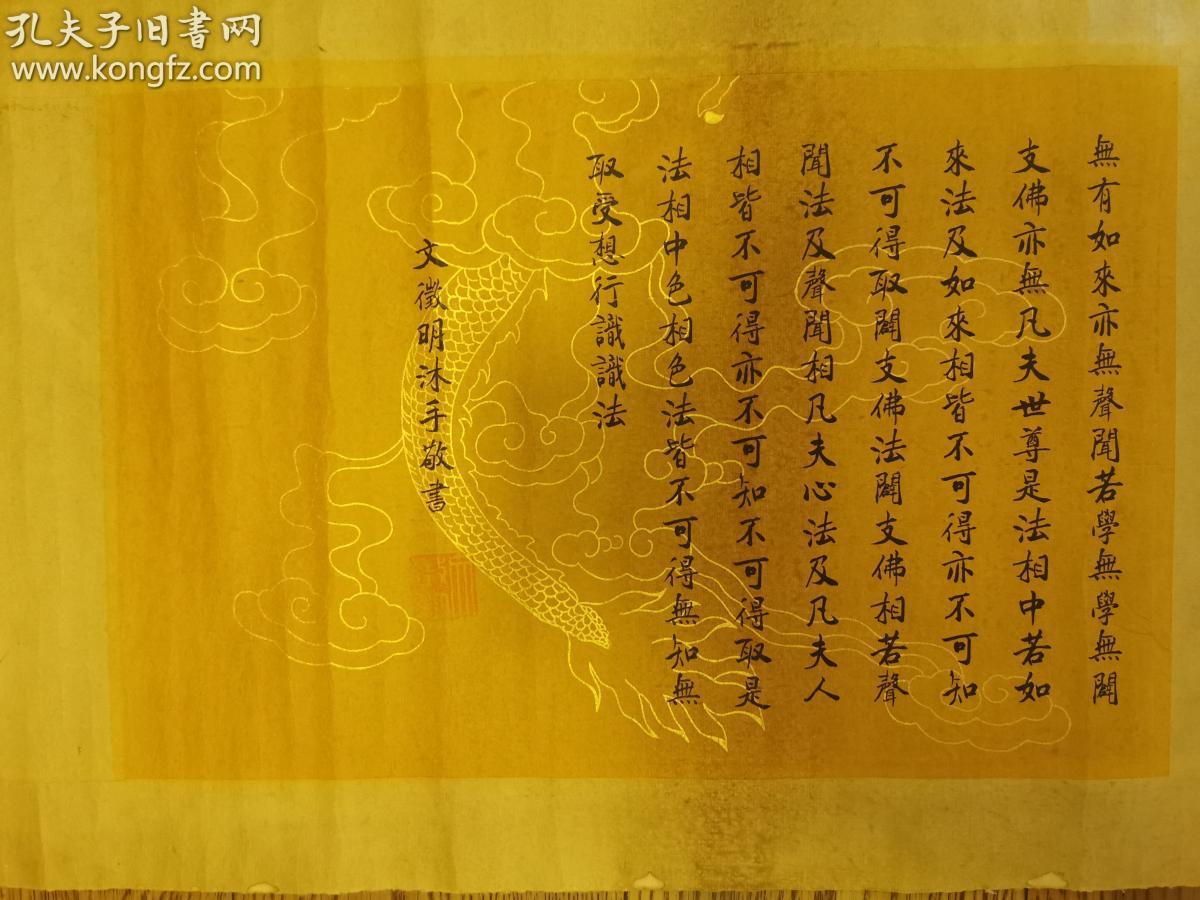 孔夫子旧書网
www.kongfz.com
無有如來亦無聲聞若學無學無闢
支佛亦無凡夫世尊是法相中若如
來法及如來相皆不可得亦不可知
不可得取闢支佛法闢支佛相若聲
聞法及聲聞相凡夫心法及凡夫人
相皆不可得亦不可知不可得取是
法相中色相色法皆不可得無知無
取受想行識識法
文徵明沐手敬書